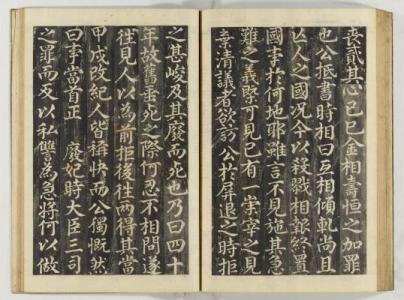 喪貳其心已巳金相壽恒之加罪
也公抵書時相曰互相傾軋尚且
亡人之國况今以殺戮相報終置
國事於何地耶雖言不見施其急
難之義際可見已有一宰之見
棄清議者欲訪公於屏退之時拒
之甚峻及其廢而死也乃曰四十
年故舊垂死之際何忍不相問遂
徃見人以為前拒後徃兩得其當
甲戌改紀人皆稱快而公獨慨然
曰事當首正廢妃時大臣三司
之罪而反以私讐為急將何以做